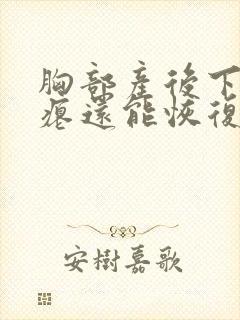 胸部產後下
瘪還能恢復
安樹嘉歌